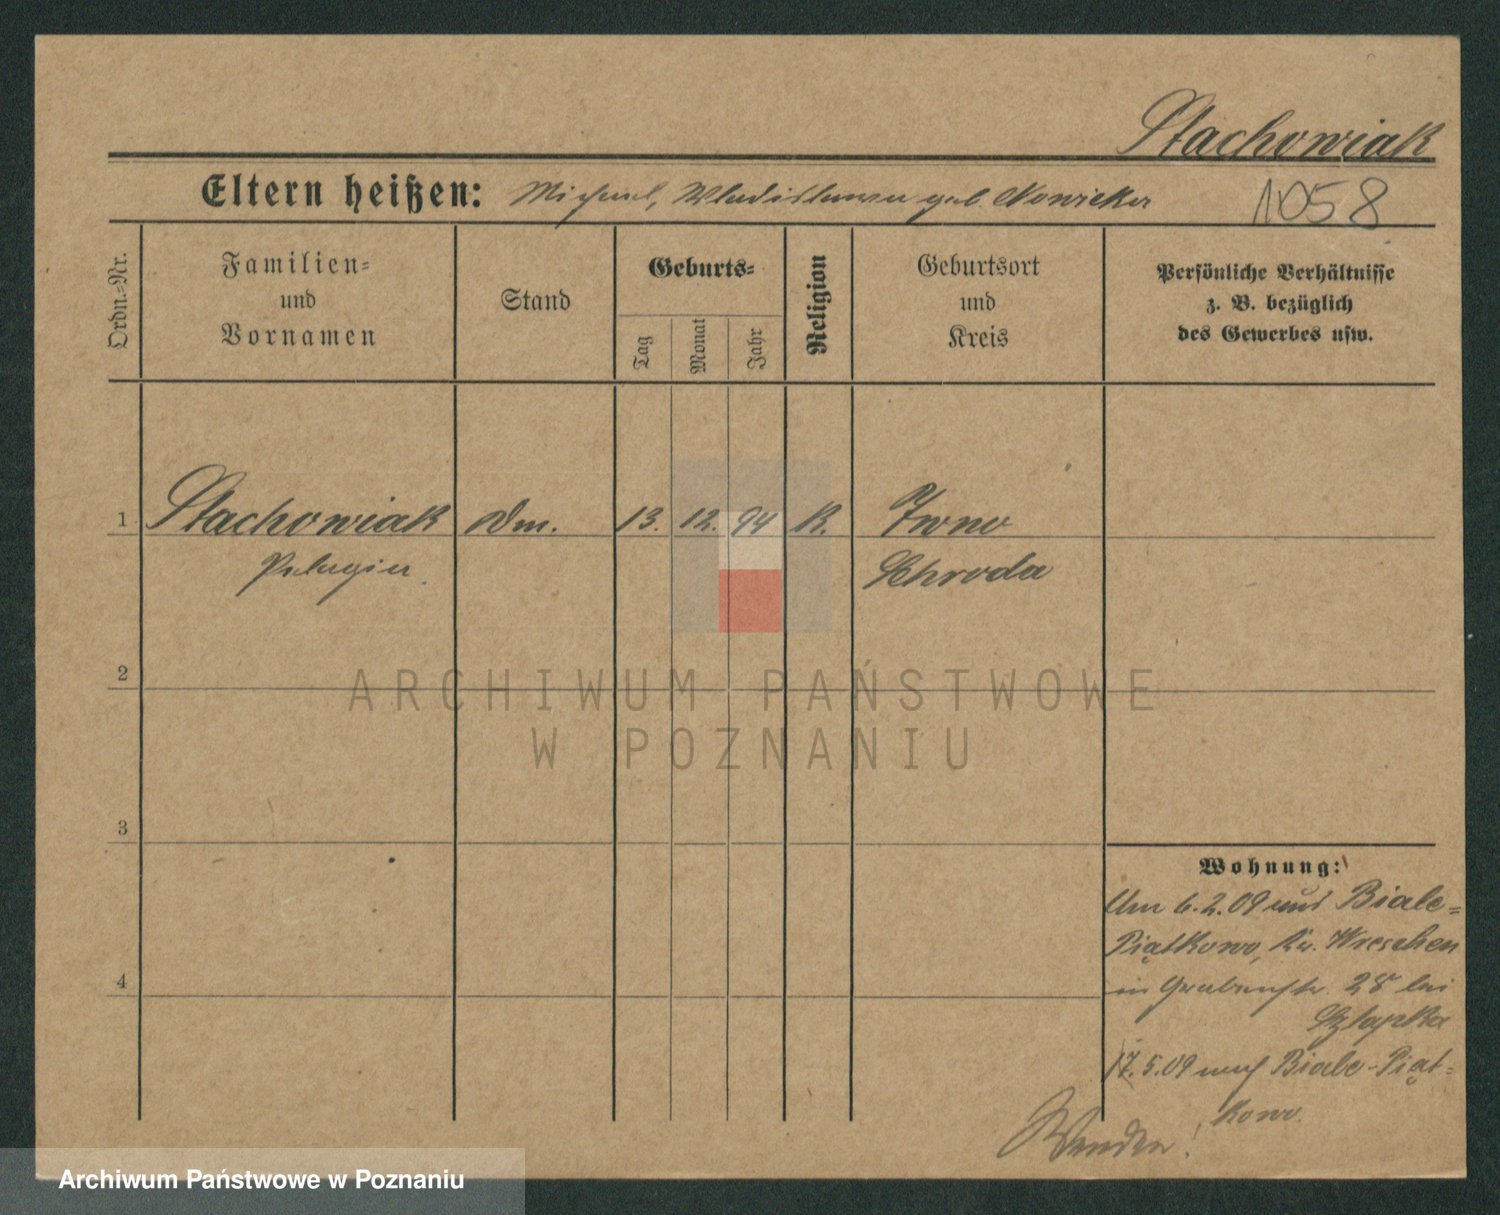 Stachowiak
Eltern heißen: Michael, Wladislawa geb. Nowicka
1058
Ordn.=Nr.
Familien=
und
Vornamen
Stand
Geburts=
Tag
Monat
Jahr
Religion
Geburtsort
und
Kreis
Persönliche Verhältnisse
z. B. bezüglich
des Gewerbes usw.
1 Stachowiak Dm. 13. 12. 94 K. Iwno
Pelagia Schroda
2
3
4
Wohnung:
Um 6.2.09 aus Biale=
Piątkowo, Kr. Wreschen
in Grabenstr. 28 bei
Szlapka
17.5.09 nach Biale-Piąt=
kowo.
Wenden!
ARCHIWUM PAŃSTWOWE
W POZNANIU
Archiwum Państwowe w Poznaniu